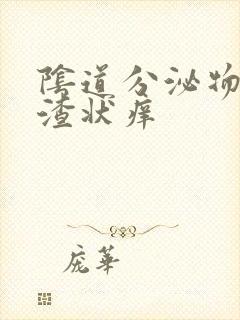 陰道分泌物
渣状痒
庞華